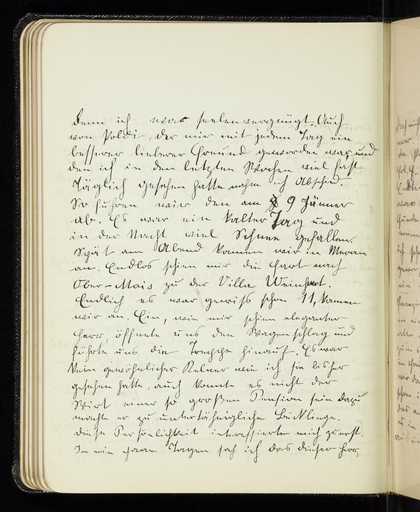 denn ich war seelenvergnügt. Auch
von Poldi, der mir mit jedem Tag ein
besserer lieberer Freund geworden war und
den ich in den letzten Wochen viel fast
täglich gesehen hatte nahm ich Abschied.
So fuhren wir den am 9 Jänner
ab. Es war ein kalter Tag und
in der Nacht viel Schnee gefallen.
Spät am Abend kamen wir in Meran
an. Endlos schien mir die Fart nach
Ober-Mais zu der Villa Weinhart.
Endlich es war gewiss schon 11, kamen
wir an. Ein, wie mir schien eleganter
Herr, öffnete uns den Wagenschlag und
führte uns die Treppe hinauf. Es war
kein gewöhnlicher Kelner wie ich sie bisher
gesehen hatte, auch konnte es nicht der
Wirt einer so großen Pension sein dazu
machte er zu untertänige Bücklinge.
diese Persönlichkeit interessierte mich zuerst.
In ein paar Tagen sah ich das dieser Herr